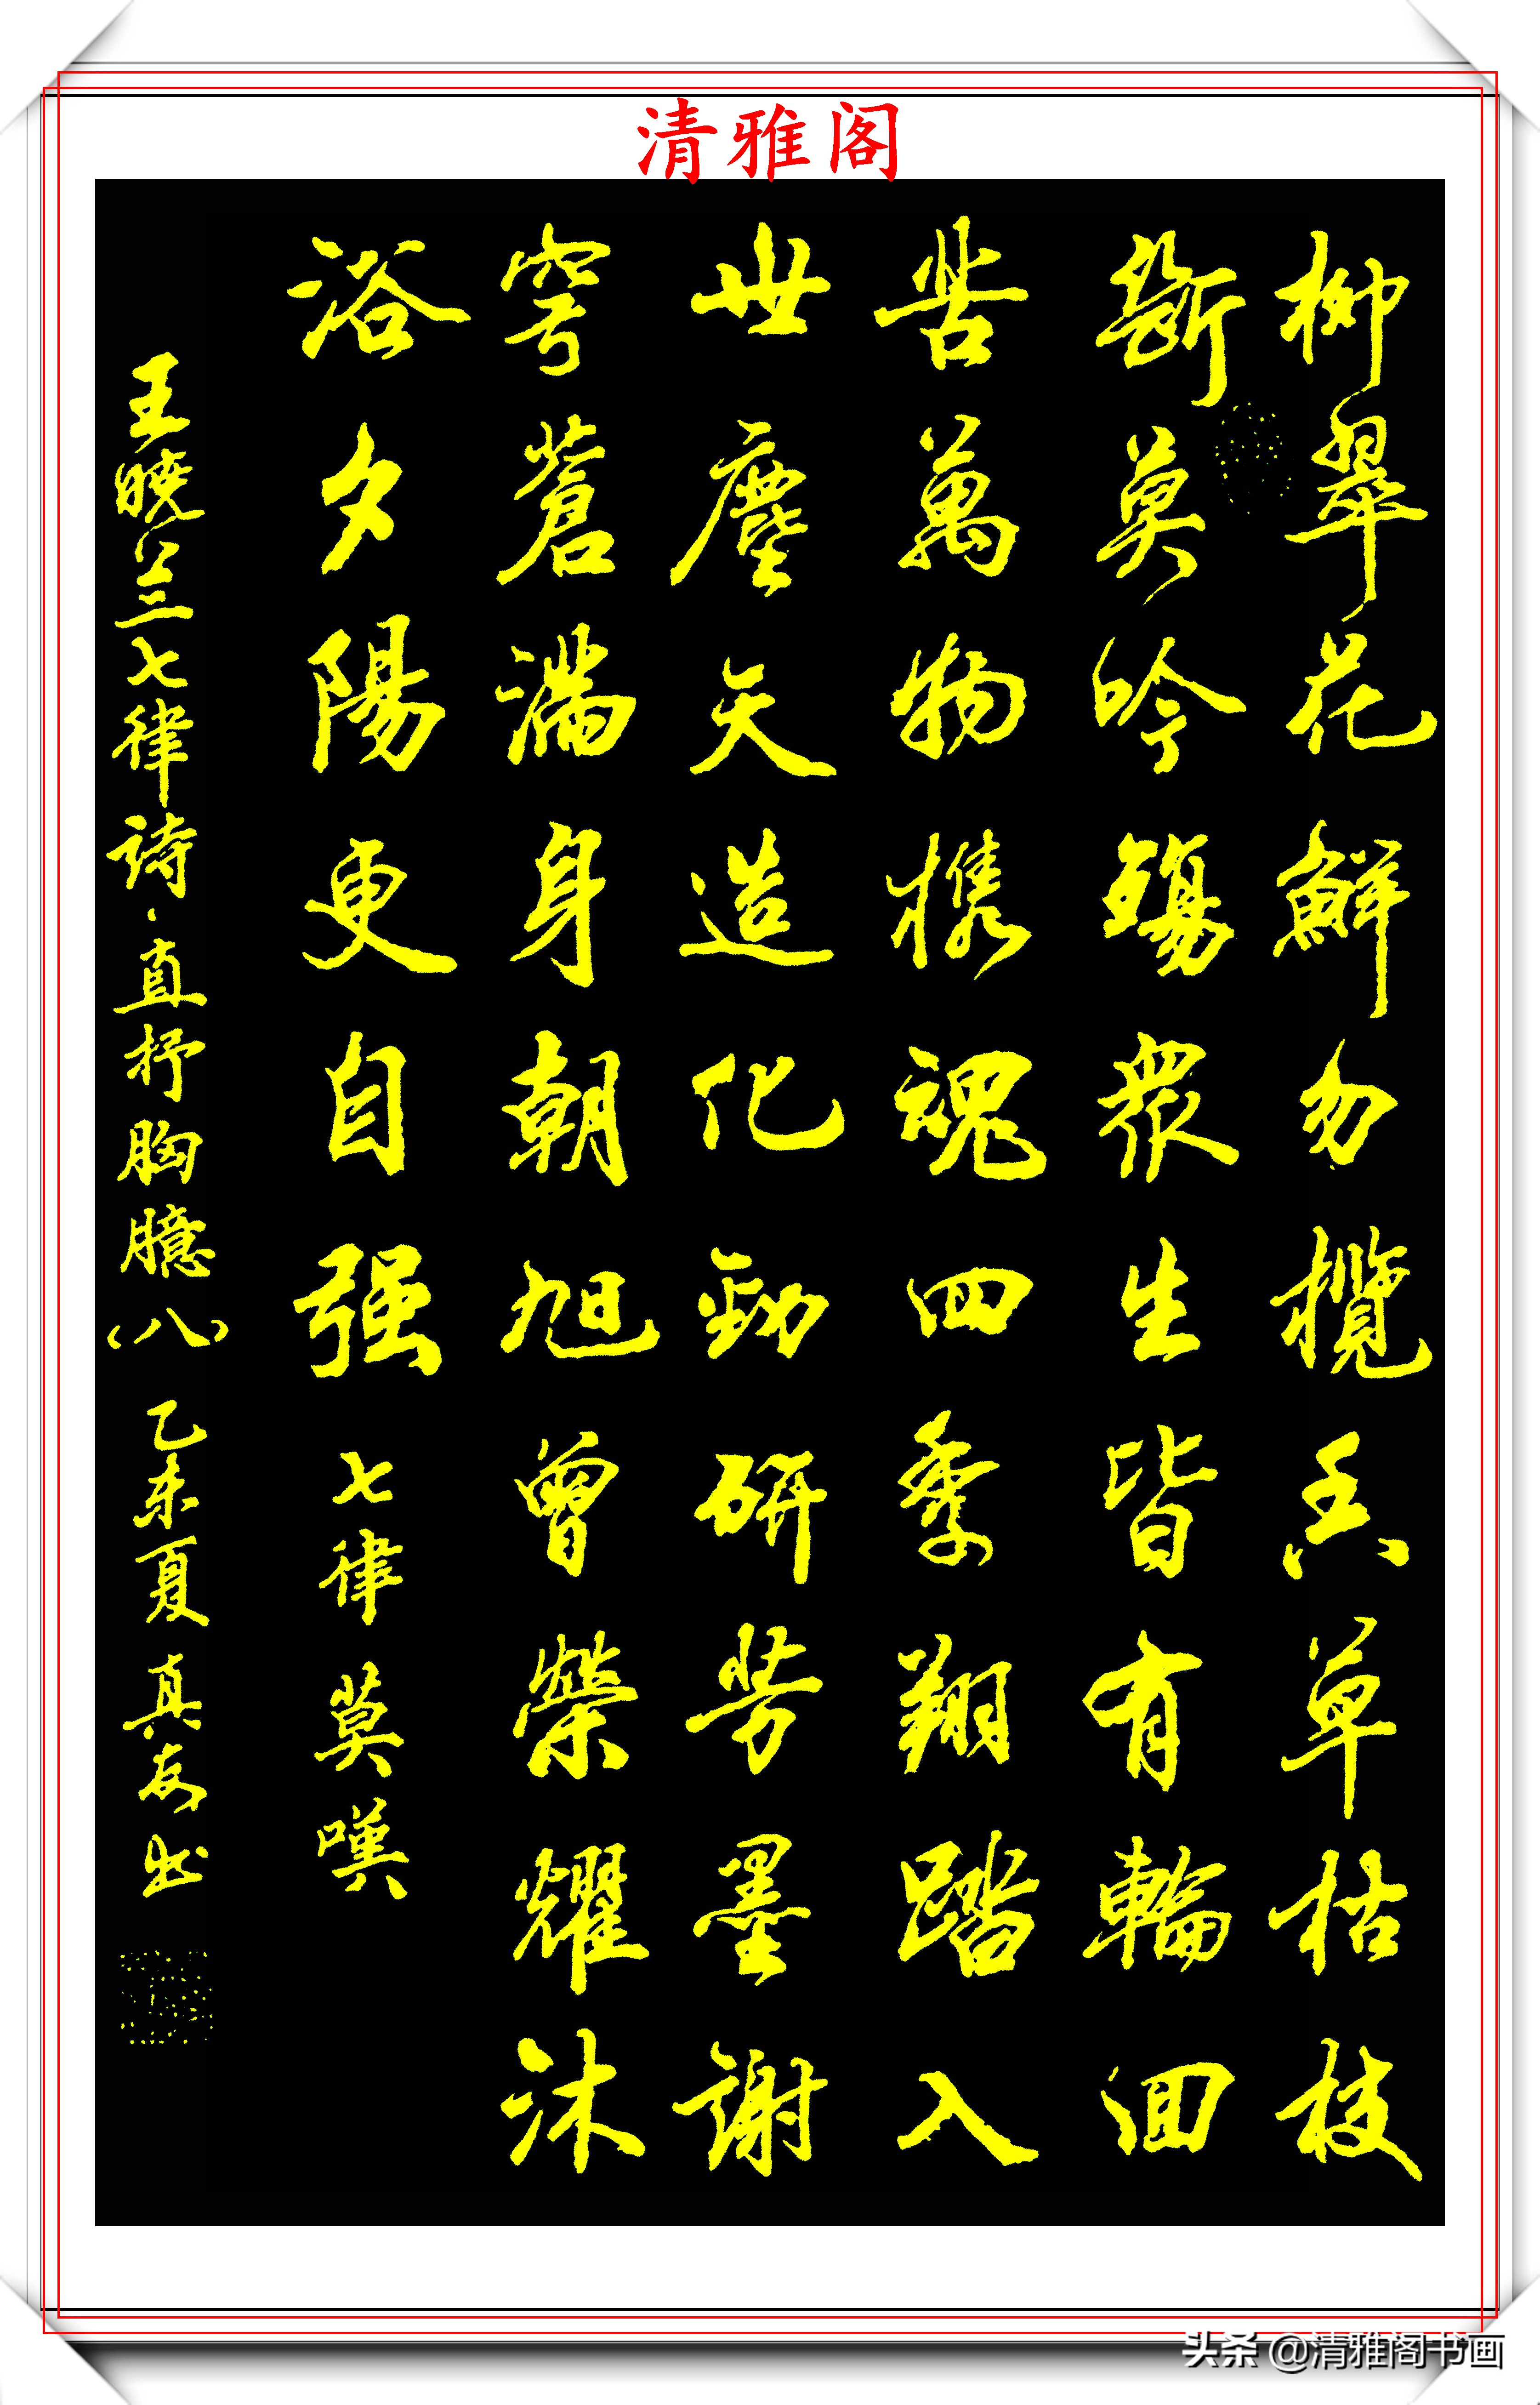 清雅阁
柳翠花鮮勿攬香草枯枝
斷莫吟殤眾生皆有輪迴
苦萬物携魂四季翔踏入
世塵天造化勁研芳墨謝
穹蒼滿身朝旭曾榮耀沐
浴夕陽更自强 七律 莫嘆
王晓兰七律诗·直抒胸臆(八) 乙未夏 真 书
头条 @清雅阁书画